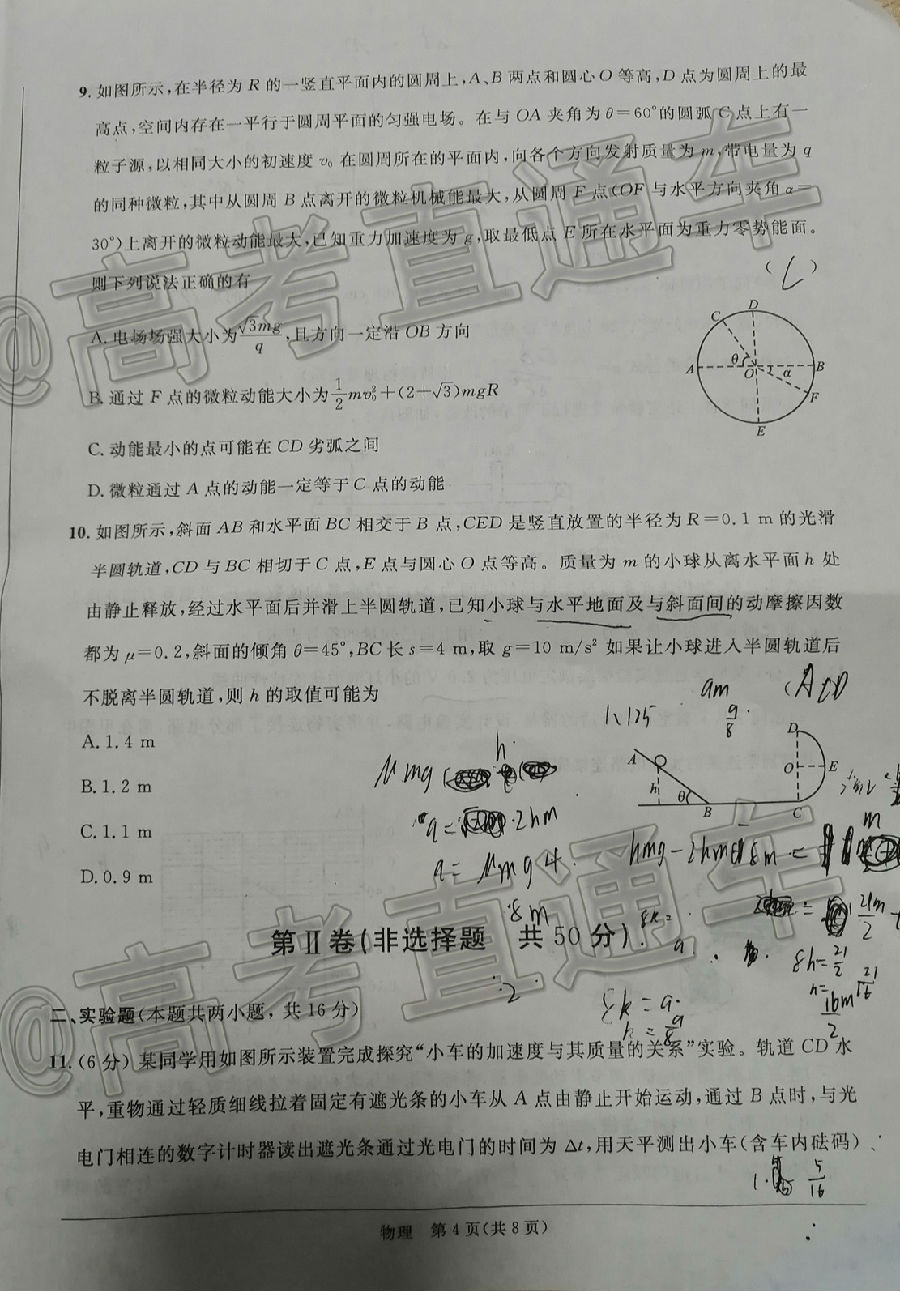 9. 如图所示,在半径为 R 的一竖直平面内的圆周上,A、B 两点和圆心 O 等高,D 点为圆周上的最
高点,空间内存在一平行于圆周平面的匀强电场。在与 OA 夹角为 θ=60°的圆弧 C 点上有一
粒子源,以相同大小的初速度 v₀ 在圆周所在的平面内,向各个方向发射质量为 m,带电量为 q
的同种微粒,其中从圆周 B 点离开的微粒机械能最大,从圆周 F 点(OF 与水平方向夹角 α=
30°)上离开的微粒动能最大,已知重力加速度为 g,取最低点 E 所在水平面为重力零势能面。
则下列说法正确的有
( C )
A. 电场场强大小为√3mg/q,且方向一定沿 OB 方向
B. 通过 F 点的微粒动能大小为1/2mv₀²+(2-√3)mgR
C. 动能最小的点可能在 CD 劣弧之间
D. 微粒通过 A 点的动能一定等于 C 点的动能
D
C
θ
A
O
B
α
F
E
10. 如图所示,斜面 AB 和水平面 BC 相交于 B 点,CED 是竖直放置的半径为 R=0.1 m 的光滑
半圆轨道,CD 与 BC 相切于 C 点,E 点与圆心 O 点等高。质量为 m 的小球从离水平面 h 处
由静止释放,经过水平面后并滑上半圆轨道,已知小球与水平地面及与斜面间的动摩擦因数
都为 μ=0.2,斜面的倾角 θ=45°,BC 长 s=4 m,取 g=10 m/s² 如果让小球进入半圆轨道后
不脱离半圆轨道,则 h 的取值可能为
(ACD
A. 1.4 m
B. 1.2 m
C. 1.1 m
D. 0.9 m
1.125
9/8
A
h
θ
B
C
D
O
E
μmg
h
2hm
μmg4
8m
8h=9
h=9/8
8h=21/2
第Ⅱ卷(非选择题 共 50 分)
二、实验题(本题共两小题,共 16 分)
11. (6 分) 某同学用如图所示装置完成探究“小车的加速度与其质量的关系”实验。轨道 CD 水
平,重物通过轻质细线拉着固定有遮光条的小车从 A 点由静止开始运动,通过 B 点时,与光
电门相连的数字计时器读出遮光条通过光电门的时间为 Δt,用天平测出小车(含车内砝码)
5/16
物理 第 4 页(共 8 页)
@高考直通车
@高考直通车